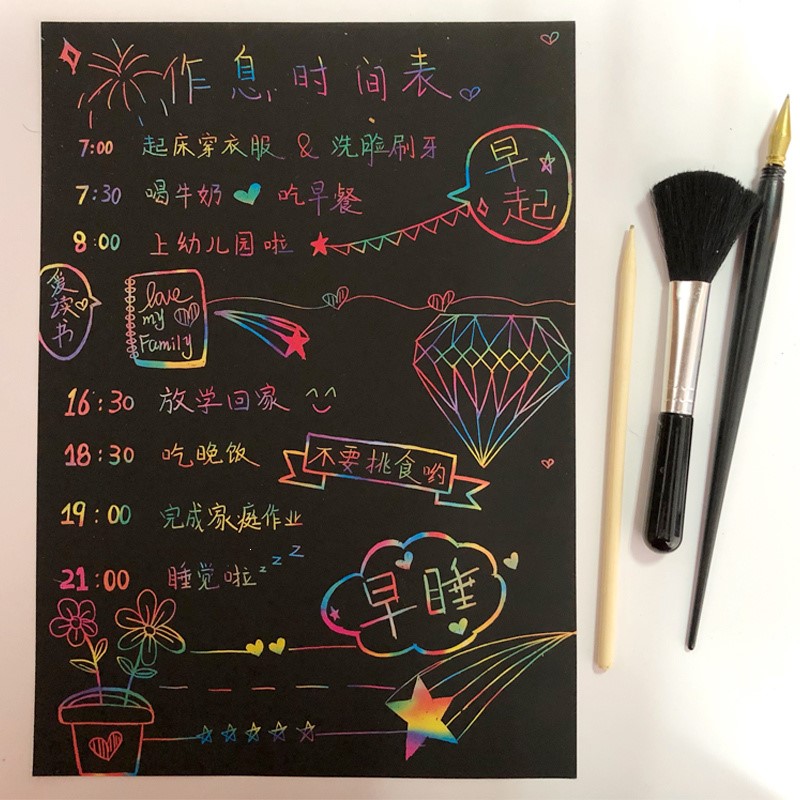 作息时间表
7:00 起床穿衣服 & 洗脸刷牙
早起
7:30 喝牛奶 吃早餐
8:00 上幼儿园啦
爱读书
love
my
Family
16:30 放学回家
18:30 吃晚饭
不要挑食哟
19:00 完成家庭作业
21:00 睡觉啦 z z Z
早睡